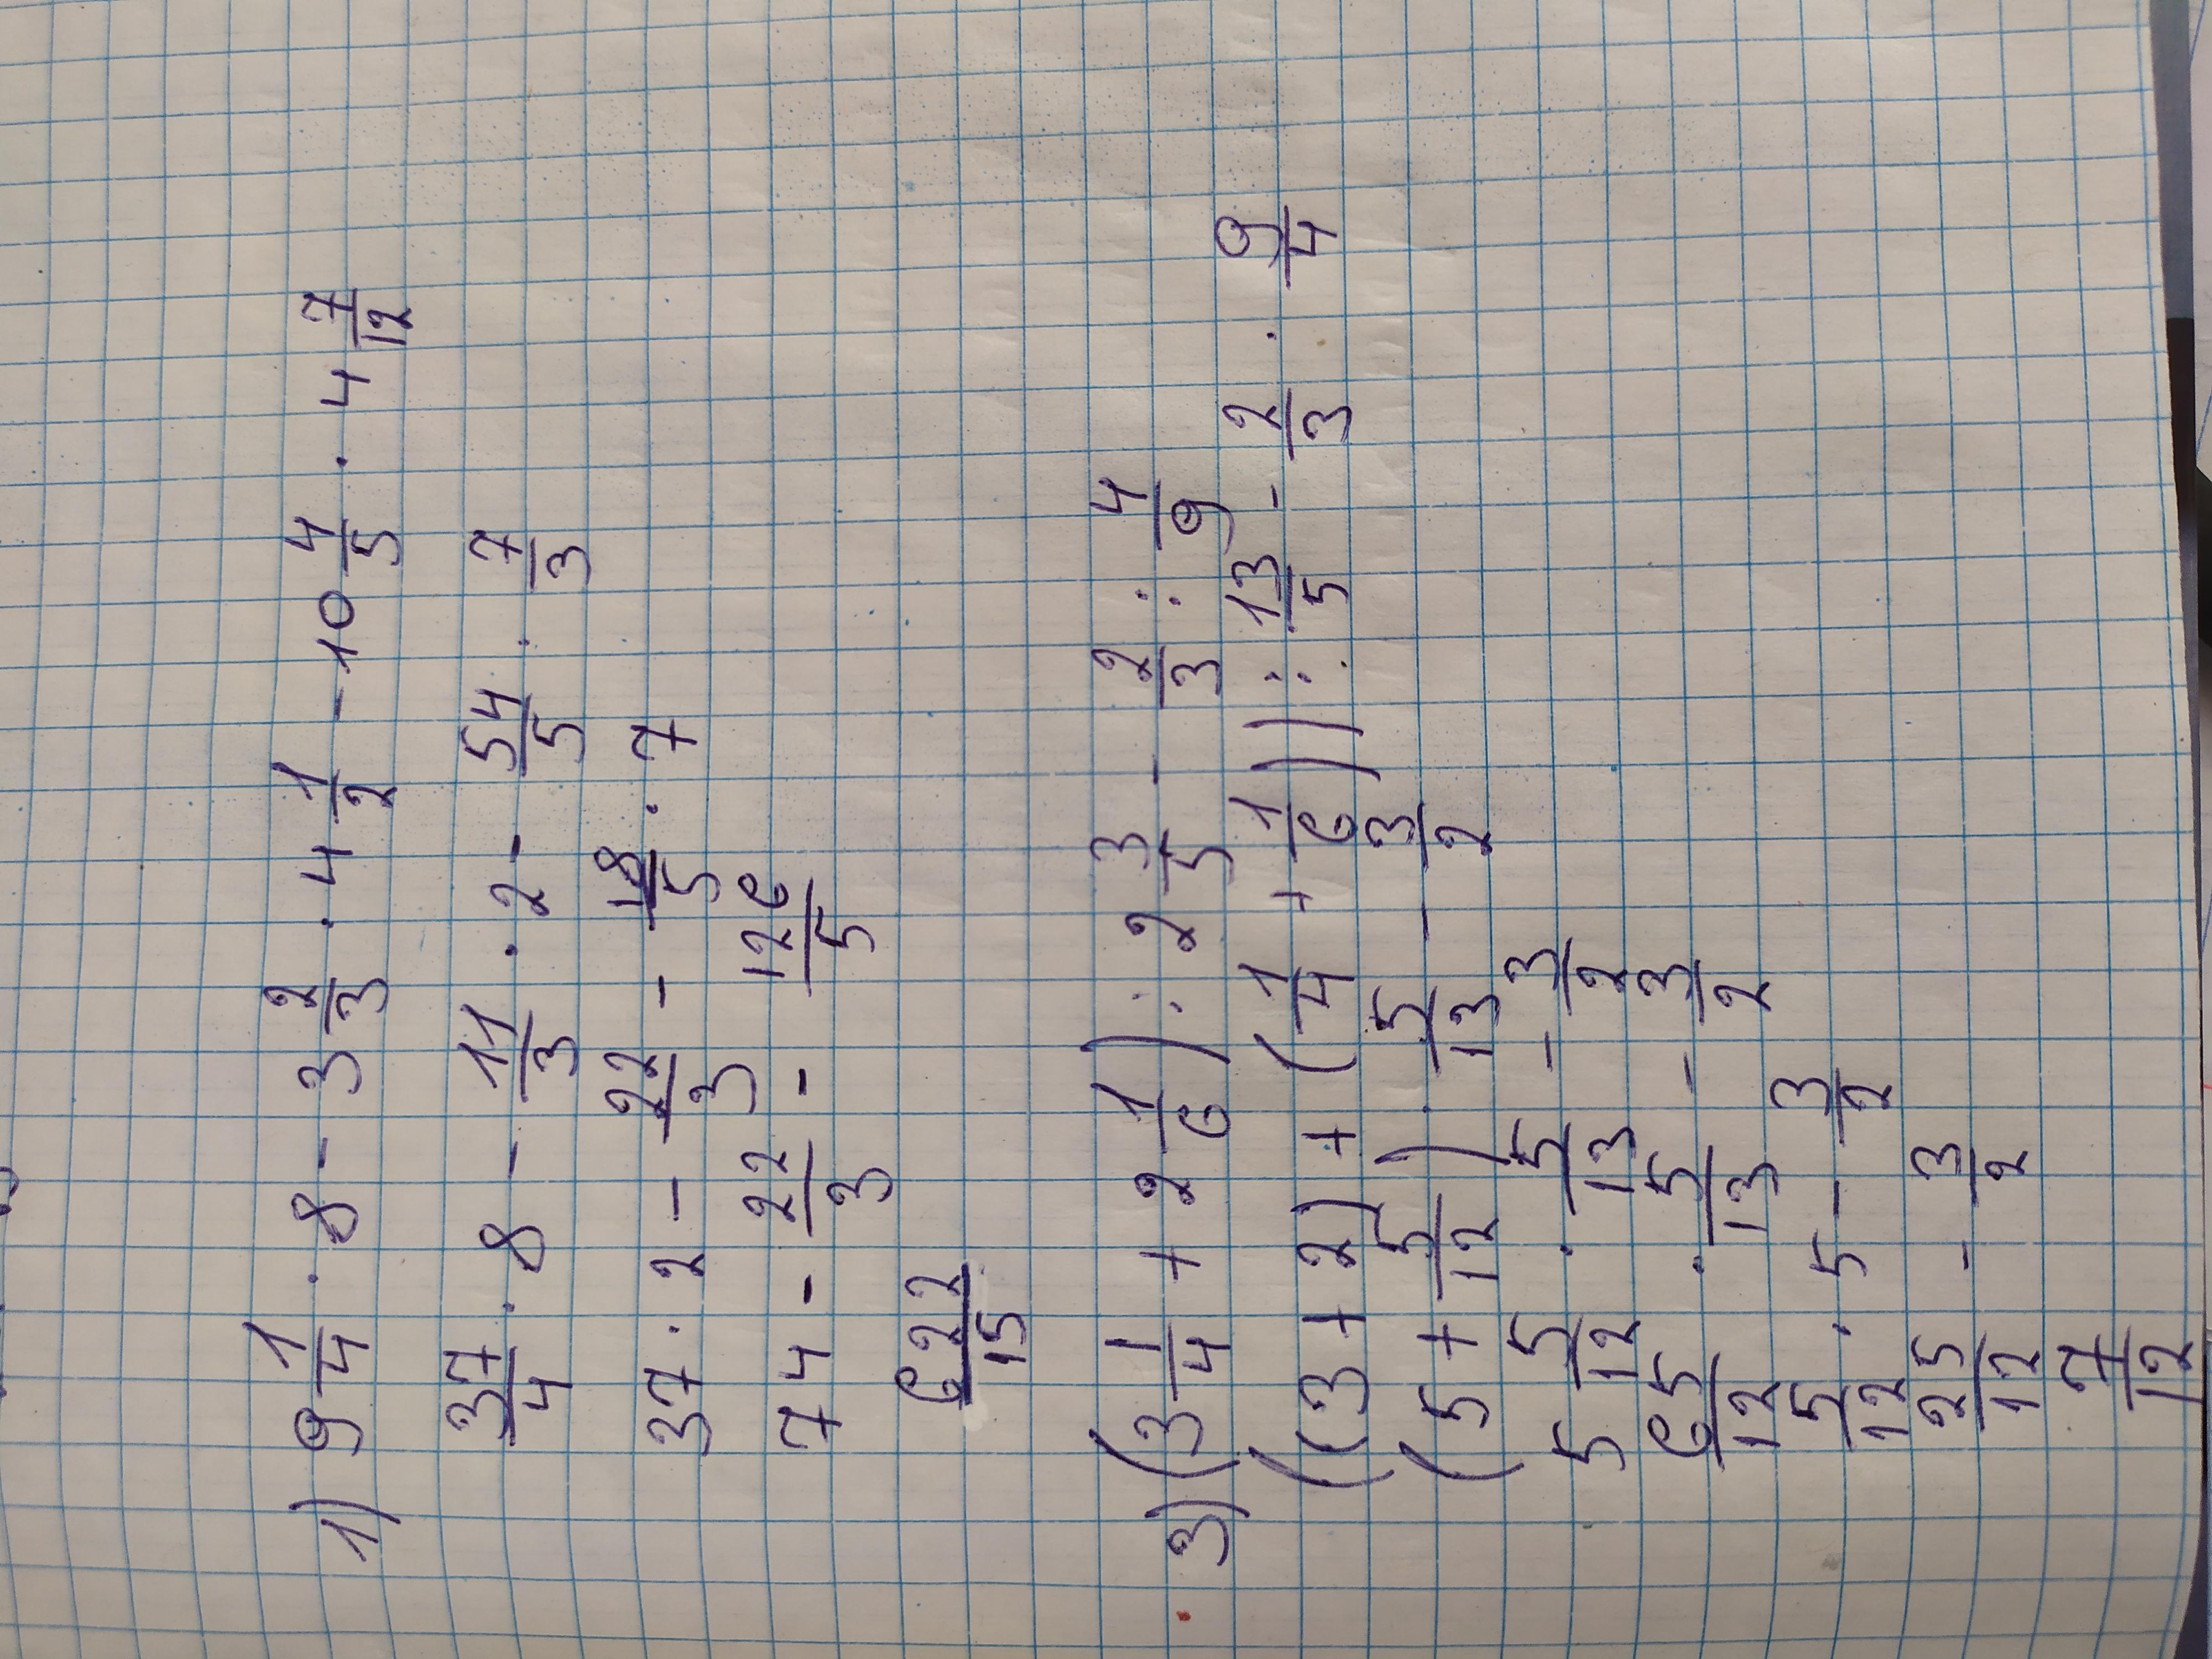 1) 9 1/4 · 8 - 3 2/3 · 4 1/2 - 10 4/5 · 4 7/12
37/4 · 8 - 11/3 · 2 - 54/5 · 7/3
37 · 2 - 22/3 - 18/5 · 7
74 - 22/3 - 126/5
622/15
3) (3 1/4 + 2 1/6) : 2 3/5 - 2/3 : 4/9
((3 + 2) + (1/4 + 1/6)) : 13/5 - 2/3 · 9/4
(5 + 5/12) · 5/13 - 3/2
5 5/12 · 5/13 - 3/2
65/12 · 5/13 - 3/2
5/12 · 5 - 3/2
25/12 - 3/2
7/12